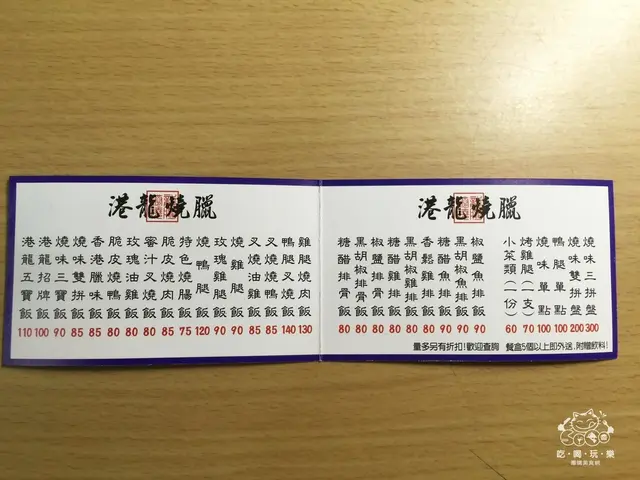 港龍燒臘
港龍五寶飯 110
港龍招牌飯 100
燒味三寶飯 90
燒味雙拼飯 85
香港臘味飯 85
脆皮燒鴨飯 80
玫瑰油雞飯 80
蜜汁叉燒飯 80
脆皮燒肉飯 85
特色燒腸飯 75
燒鴨腿飯 120
玫瑰雞腿飯 90
燒雞腿飯 90
叉燒油雞飯 85
叉燒燒鴨飯 85
鴨腿燒肉飯 140
雞腿燒肉飯 130
港龍燒臘
糖醋排骨飯 80
黑胡椒排骨飯 80
椒鹽排骨飯 80
糖醋雞排飯 80
黑胡椒雞排飯 80
香鬆雞排飯 80
糖醋魚排飯 90
黑胡椒魚排飯 90
椒鹽魚排飯 90
小菜類(一份) 60
烤雞腿(一支) 70
燒味單點 100
鴨腿單點 100
燒味雙拼盤 200
燒味三拼盤 300
量多另有折扣!歡迎查詢 餐盒5個以上即外送,附贈飲料!
吃·喝·玩·樂